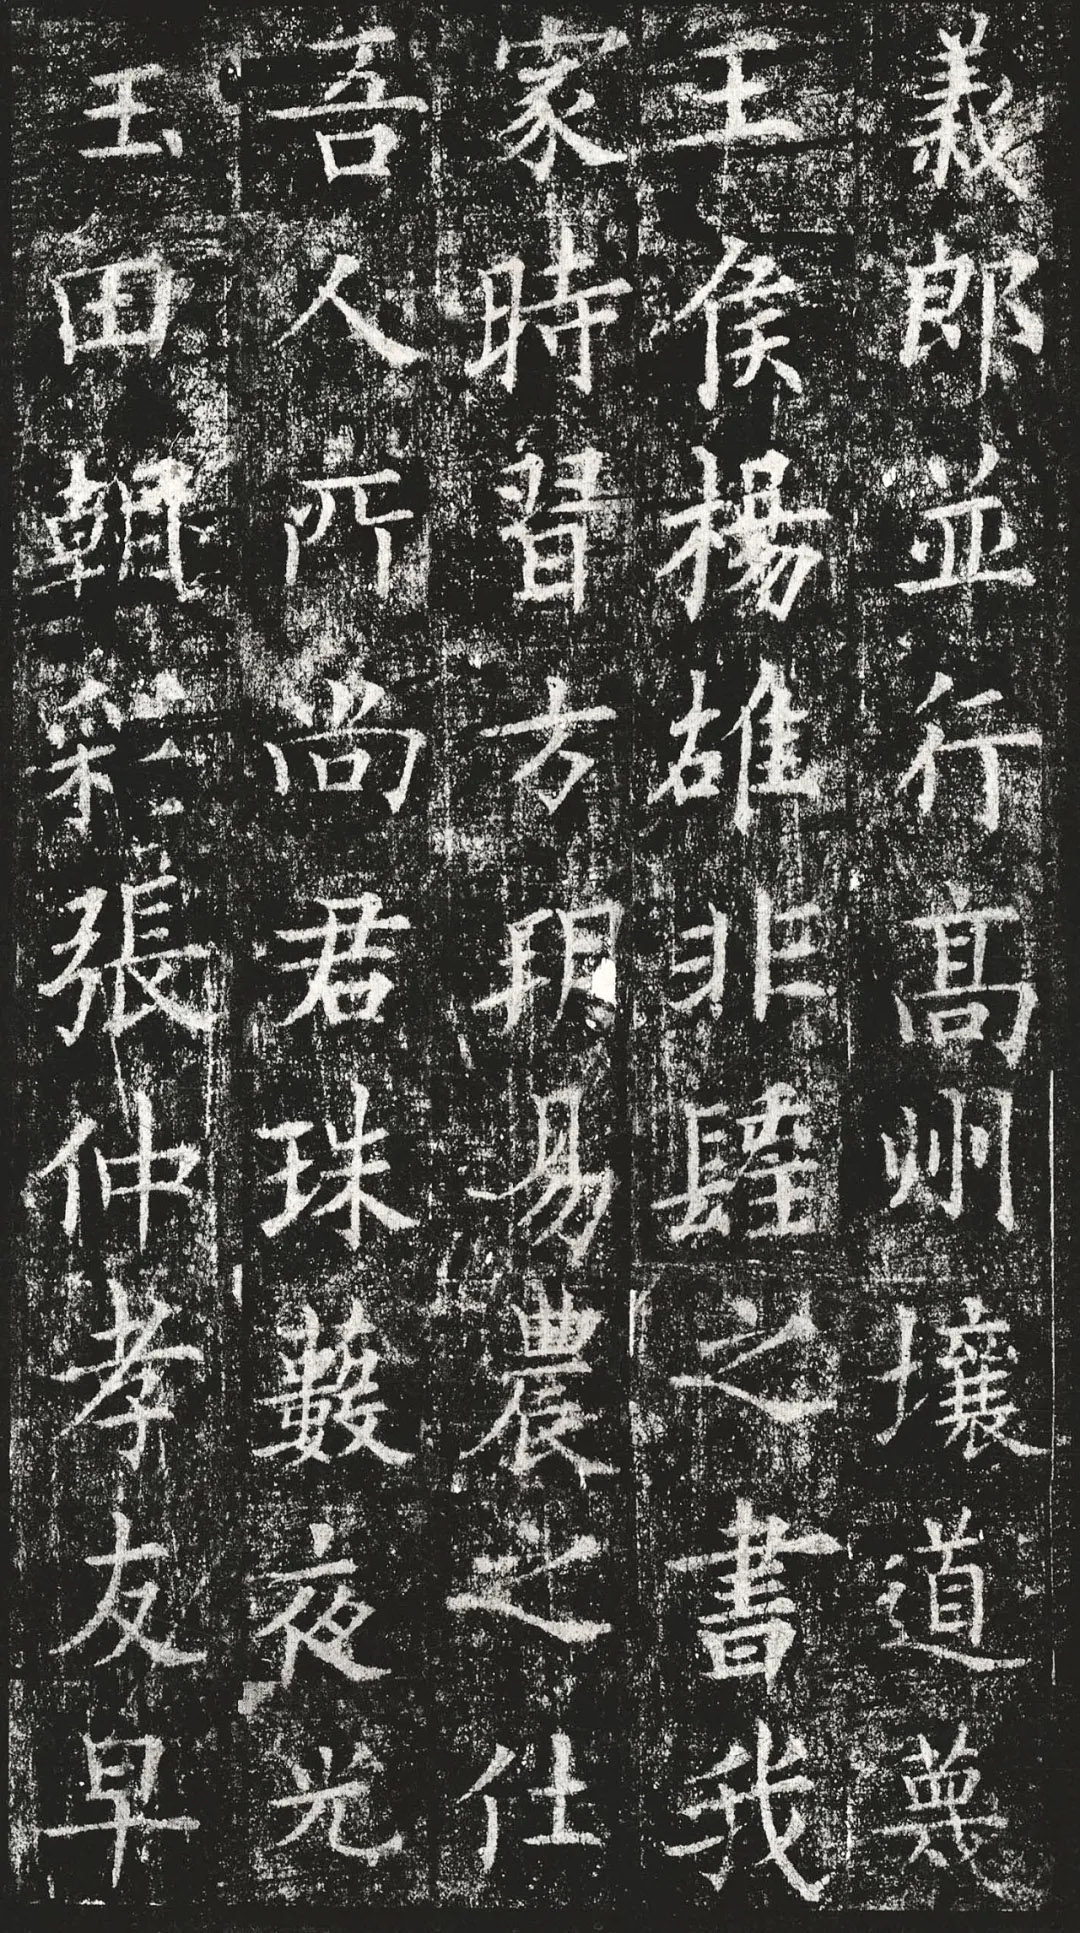 義郎並行高州壤道蔑
王侯楊雄非聖之書我
家時習方朔易農之仕
吾人所尚君珠藪夜光
玉田朝彩張仲孝友早